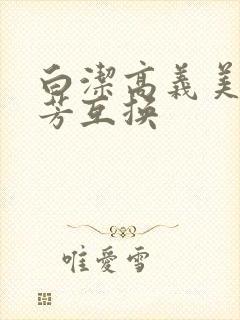 白潔高義美
芳互換
唯愛雪